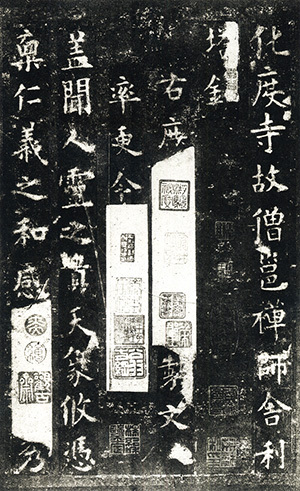 化度寺故僧邕禅師舍利
塔銘
右庶 製文
率更令
盖聞人靈之貴天象攸憑
禀仁義之和感 乃